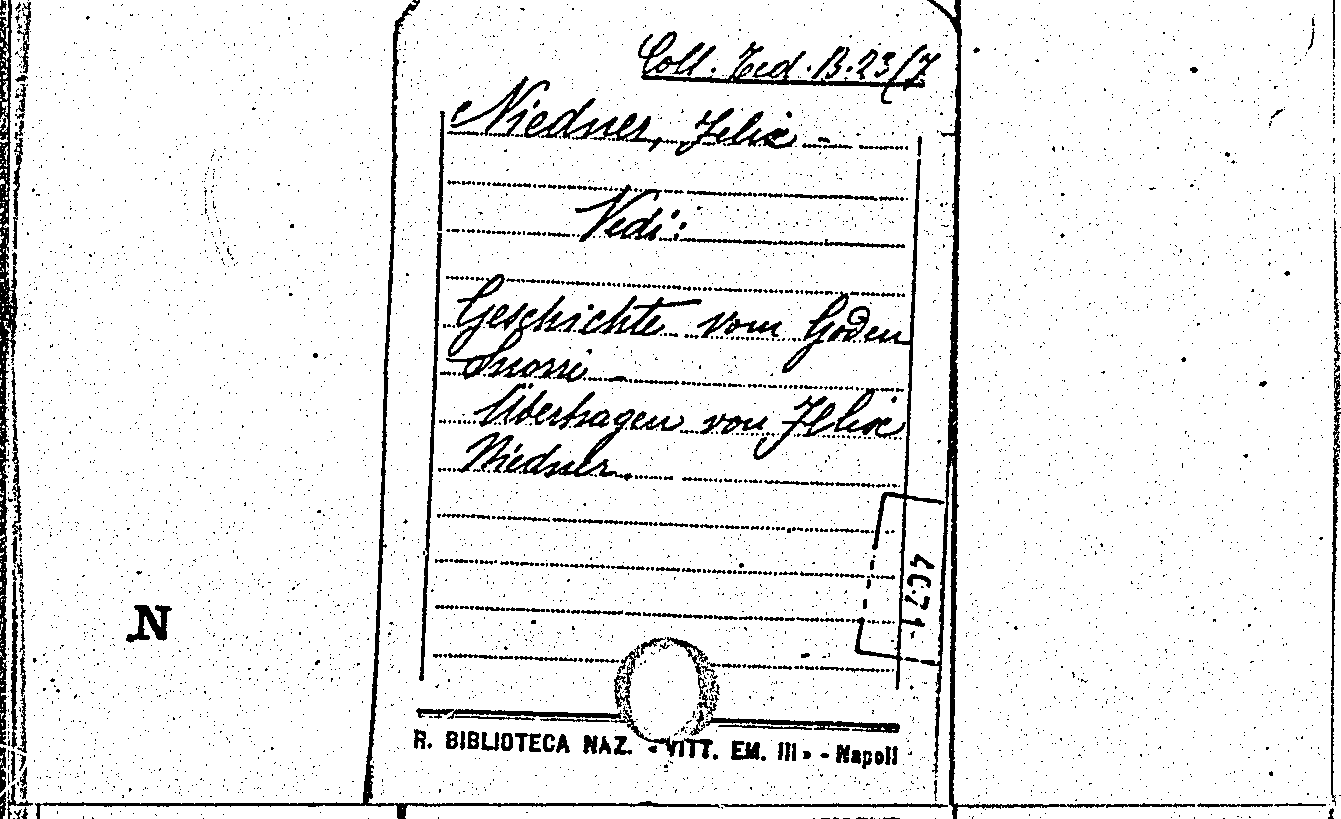 Coll. Ted. B. 23/7
Niedner, Felix -
Vedi:
Geschichte vom Goden
Snorri -
Übertragen von Felix
Niedner.
4071
N
R. BIBLIOTECA NAZ. « VITT. EM. III » - Napoli